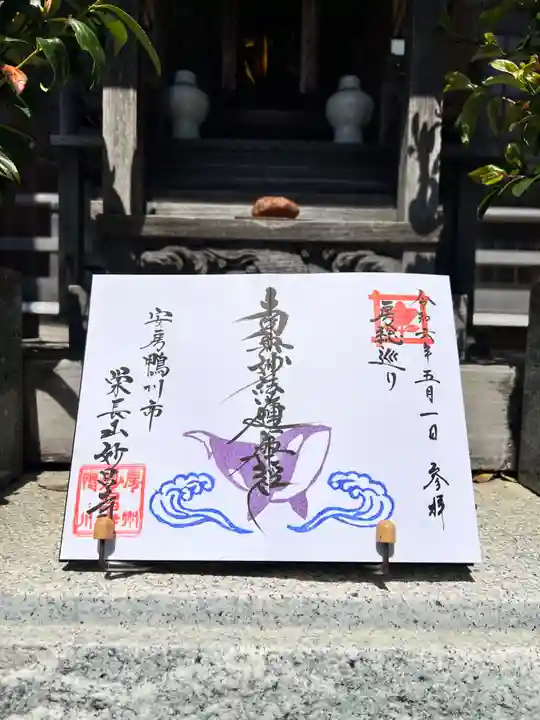 令和六年五月一日 参拝
房総巡り
南無妙法蓮華経
安房鴨川市
栄長山妙昌寺